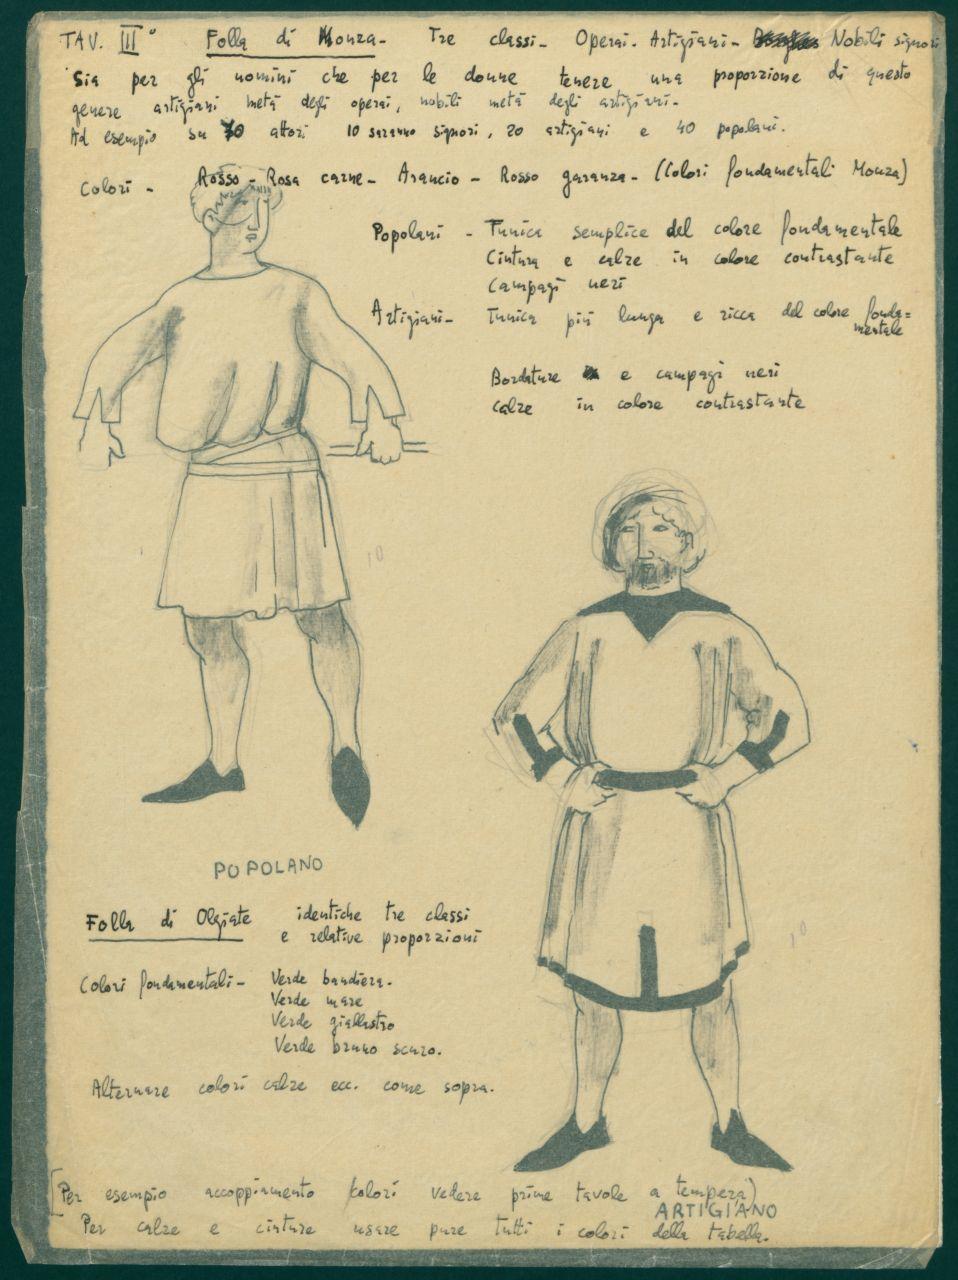 TAV. III° Folla di Monza - Tre classi - Operai - Artigiani - Nobili signori
Sia per gli uomini che per le donne tenere una proporzione di questo
genere artigiani metà degli operai, nobili metà degli artigiani -
Ad esempio su 70 attori 10 saranno signori, 20 artigiani e 40 popolani.
Colori - Rosso - Rosa carne - Arancio - Rosso garanza - (Colori fondamentali Monza)
Popolani - Tunica semplice del colore fondamentale
Cintura e calze in colore contrastante
Campagi neri
Artigiani - Tunica più lunga e ricca del colore fonda=
mentale
Bordature e campagi neri
calze in colore contrastante
10
POPOLANO
Folla di Olgiate identiche tre classi
e relative proporzioni
10
Colori fondamentali - Verde bandiera.
Verde mare
Verde giallastro
Verde bruno scuro.
Alternare colori calze ecc. come sopra.
(Per esempio accoppiamento colori vedere prime tavole a tempera)
ARTIGIANO
Per calze e cinture usare pure tutti i colori della tabella.